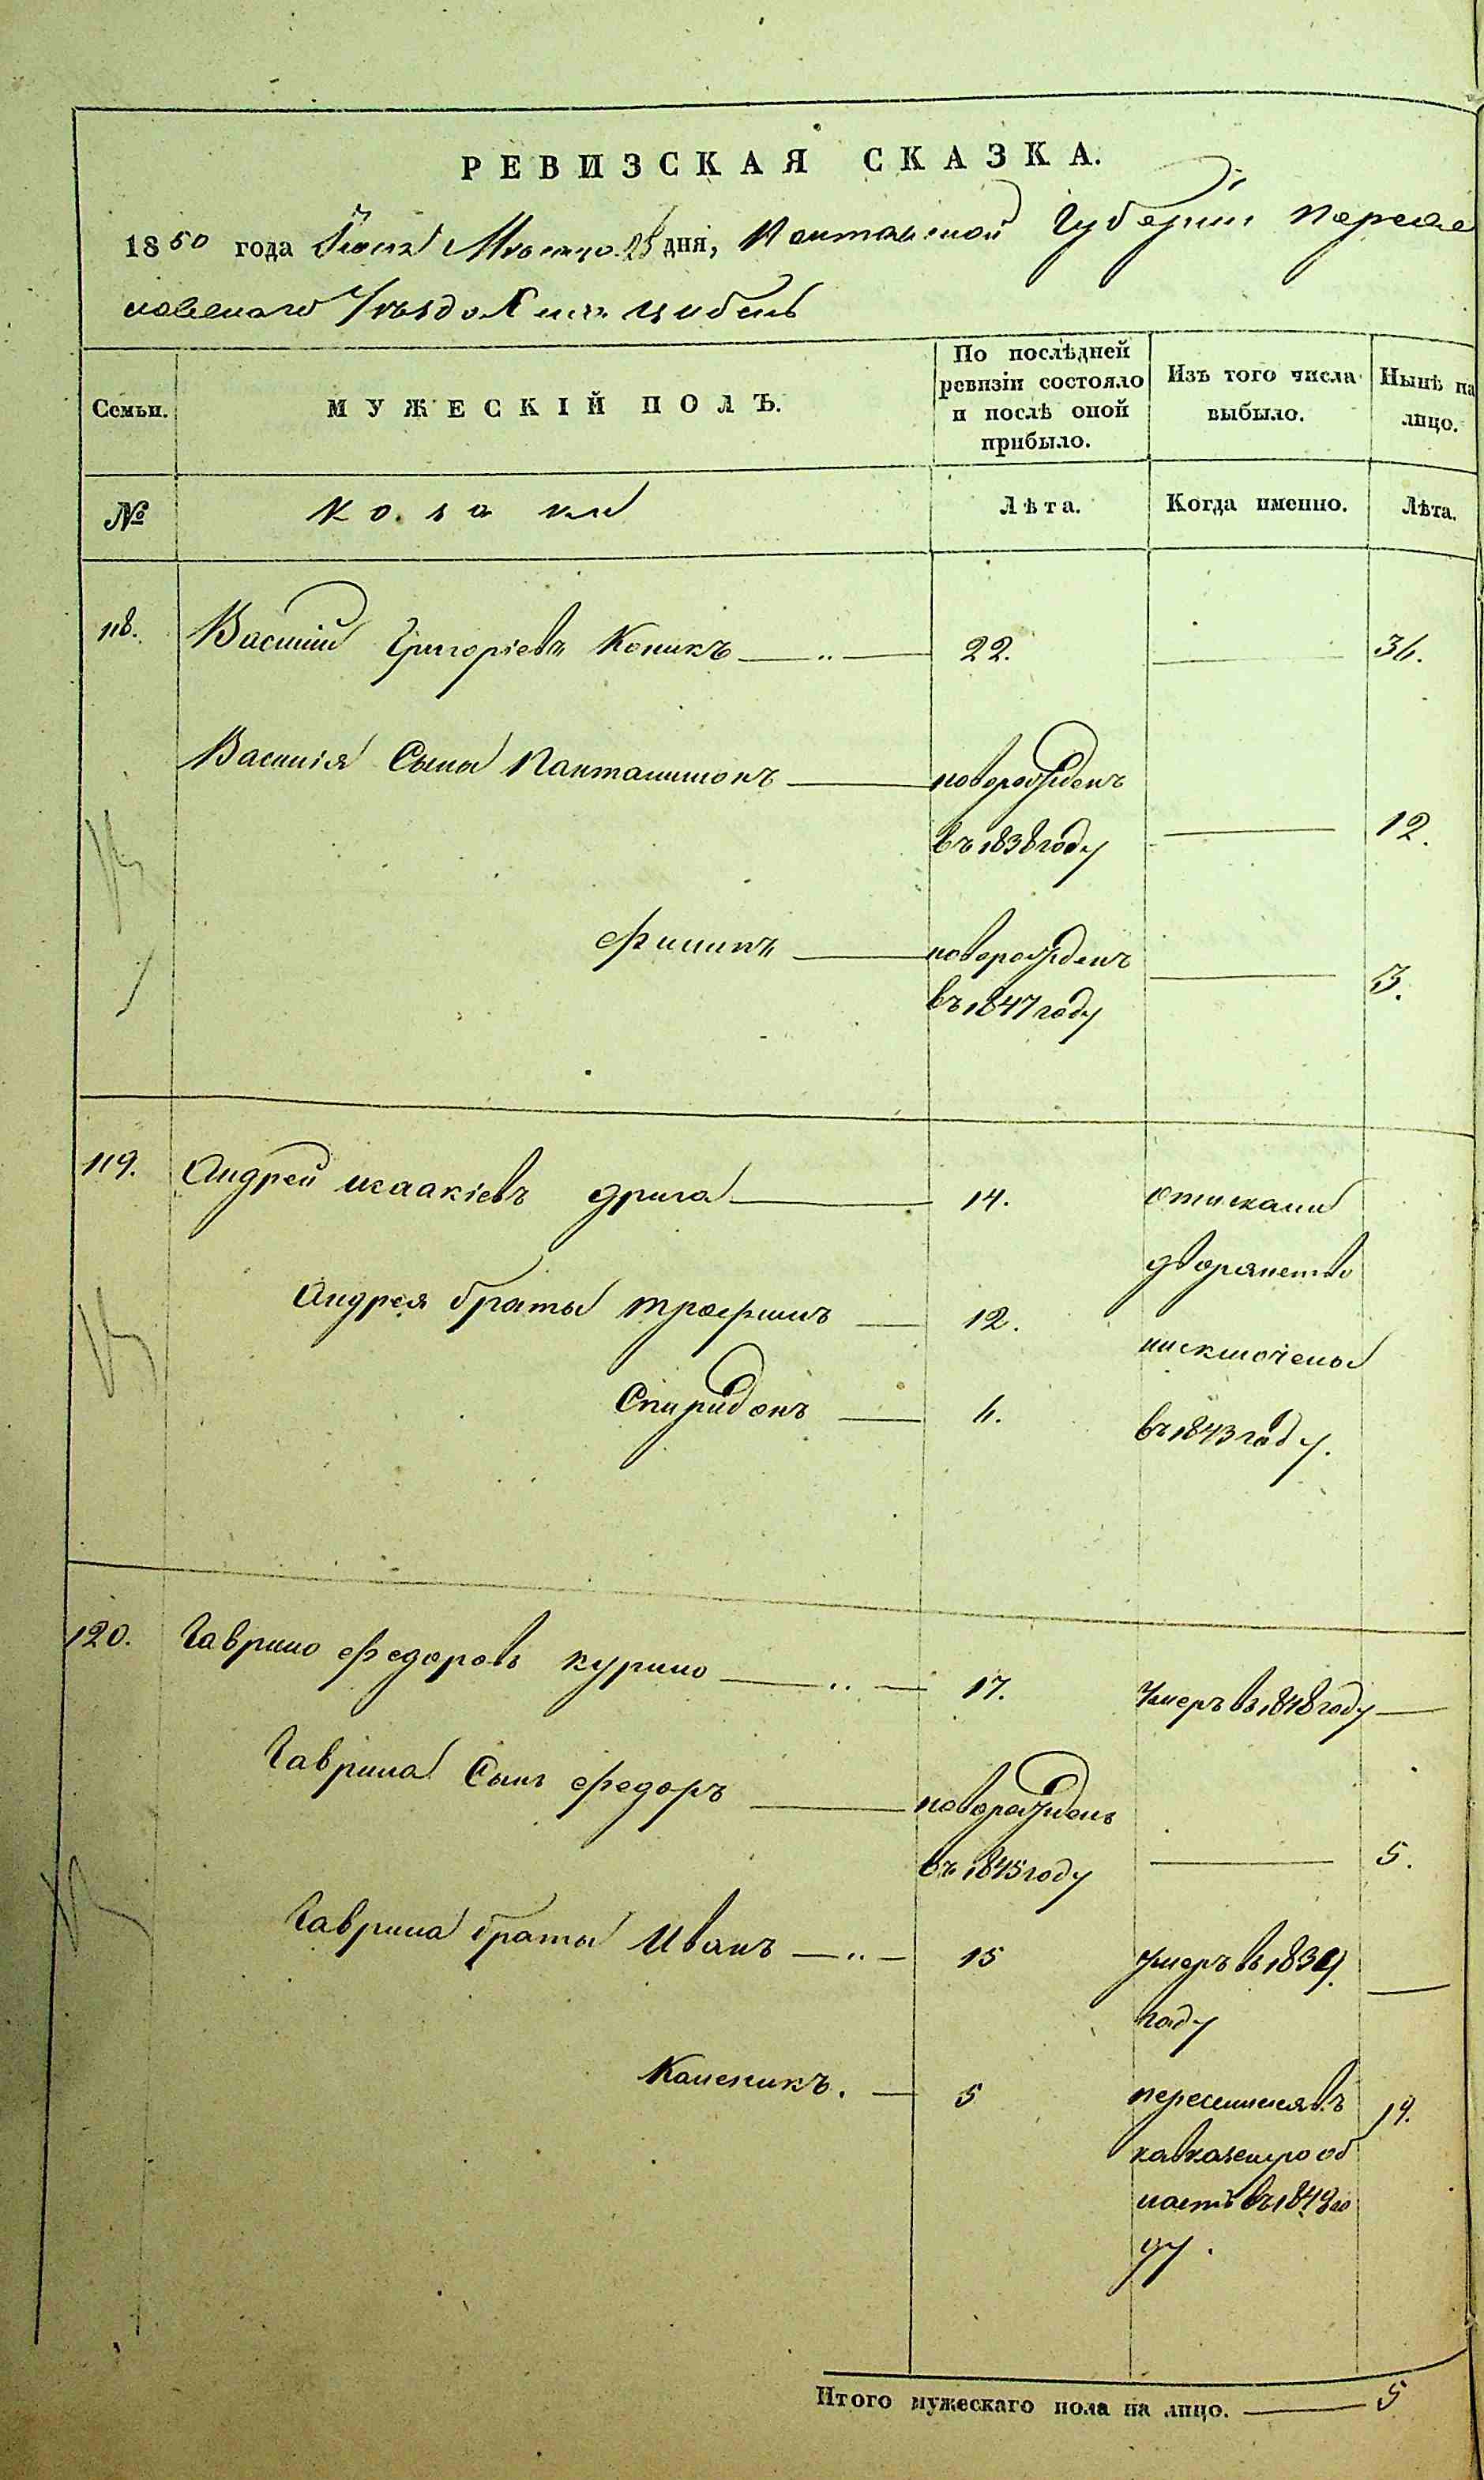 РЕВИЗСКАЯ СКАЗКА.
1850 года Мѣсяца 25 дня, Полтавской Губерніи Переяс
лавскаго Уѣзда Села Цибель
Семьи.
МУЖЕСКІЙ ПОЛЪ.
По послѣдней
ревизіи состояло
и послѣ оной
прибыло.
Изъ того числа
выбыло.
Нынѣ на
лицо.
№
козаки
Лѣта.
Когда именно.
Лѣта.
118. Василій Григоріевъ Коникъ 22. 36.
Василія Сыны Панталимонъ новорожденъ
въ 1838 году 12.
Филипъ новорожденъ
въ 1847 году 3.
119. Андрей Исаакіевъ Дрига 14. отискали
дворянство
Андрея браты Трофимъ 12.
иисключены
Спиридонъ 6.
въ 1843 году.
120. Гаврило Федоровъ Курило 17. Умеръ въ 1848 году
Гаврила Сынъ Федоръ новорожденъ
въ 1845 году 5.
Гаврила браты Иванъ 15 умеръ въ 1839
году
Каленикъ. 5 переселился въ 19.
кавказскую об
ласть въ 1849 го
ду.
Итого мужескаго пола на лицо. 5